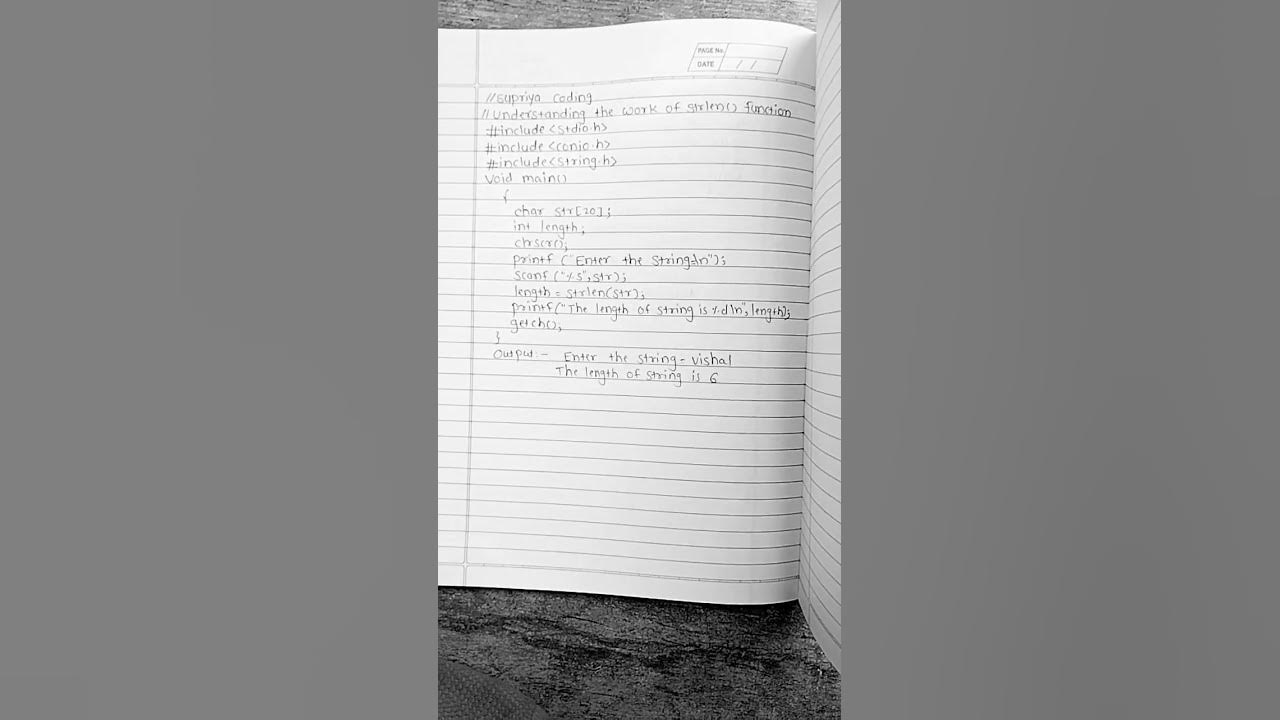 PAGE No.
DATE / /
//Supriya Coding
//Understanding the work of strlen() function
#include<stdio.h>
#include<conio.h>
#include<string.h>
void main()
{
char str[20];
int length;
clrscr();
printf ("Enter the string:\n");
scanf ("%s",str);
length = strlen(str);
printf("The length of string is %d\n", length);
getch();
}
Output:- Enter the string - vishal
The length of string is 6